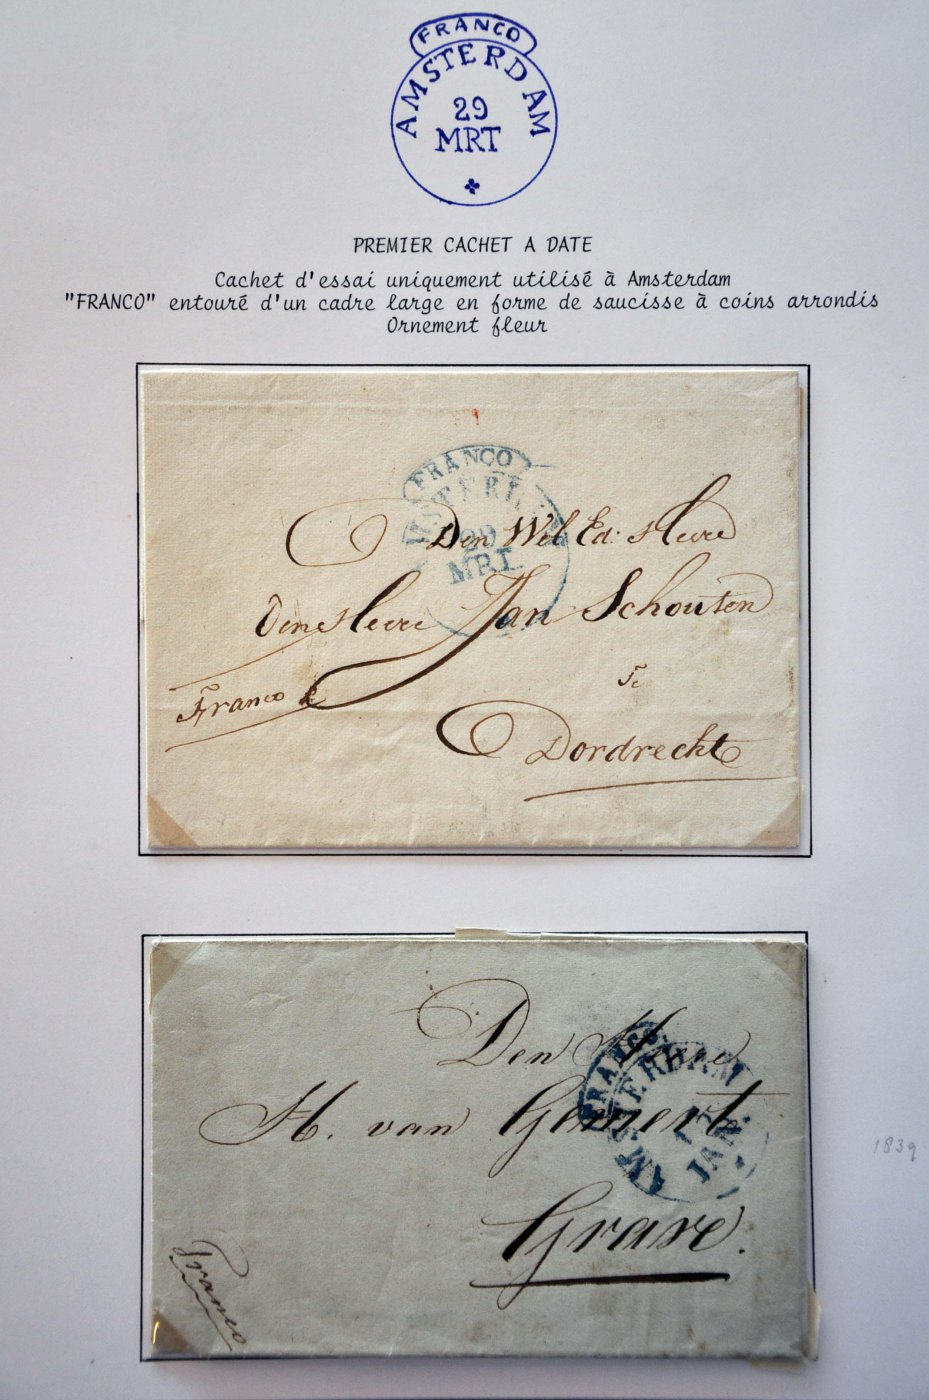 FRANCO
AMSTERDAM
29
MRT
PREMIER CACHET A DATE
Cachet d'essai uniquement utilisé à Amsterdam
"FRANCO" entouré d'un cadre large en forme de saucisse à coins arrondis
Ornement fleur
FRANCO
29
MRT
Den Wel Ed: Heere
Heere Jan Schouten
Franco
Te
Dordrecht
FRANCO
AMSTERDAM
JAN.
Den Heere
H. van Gament
Grave.
Franco
1839